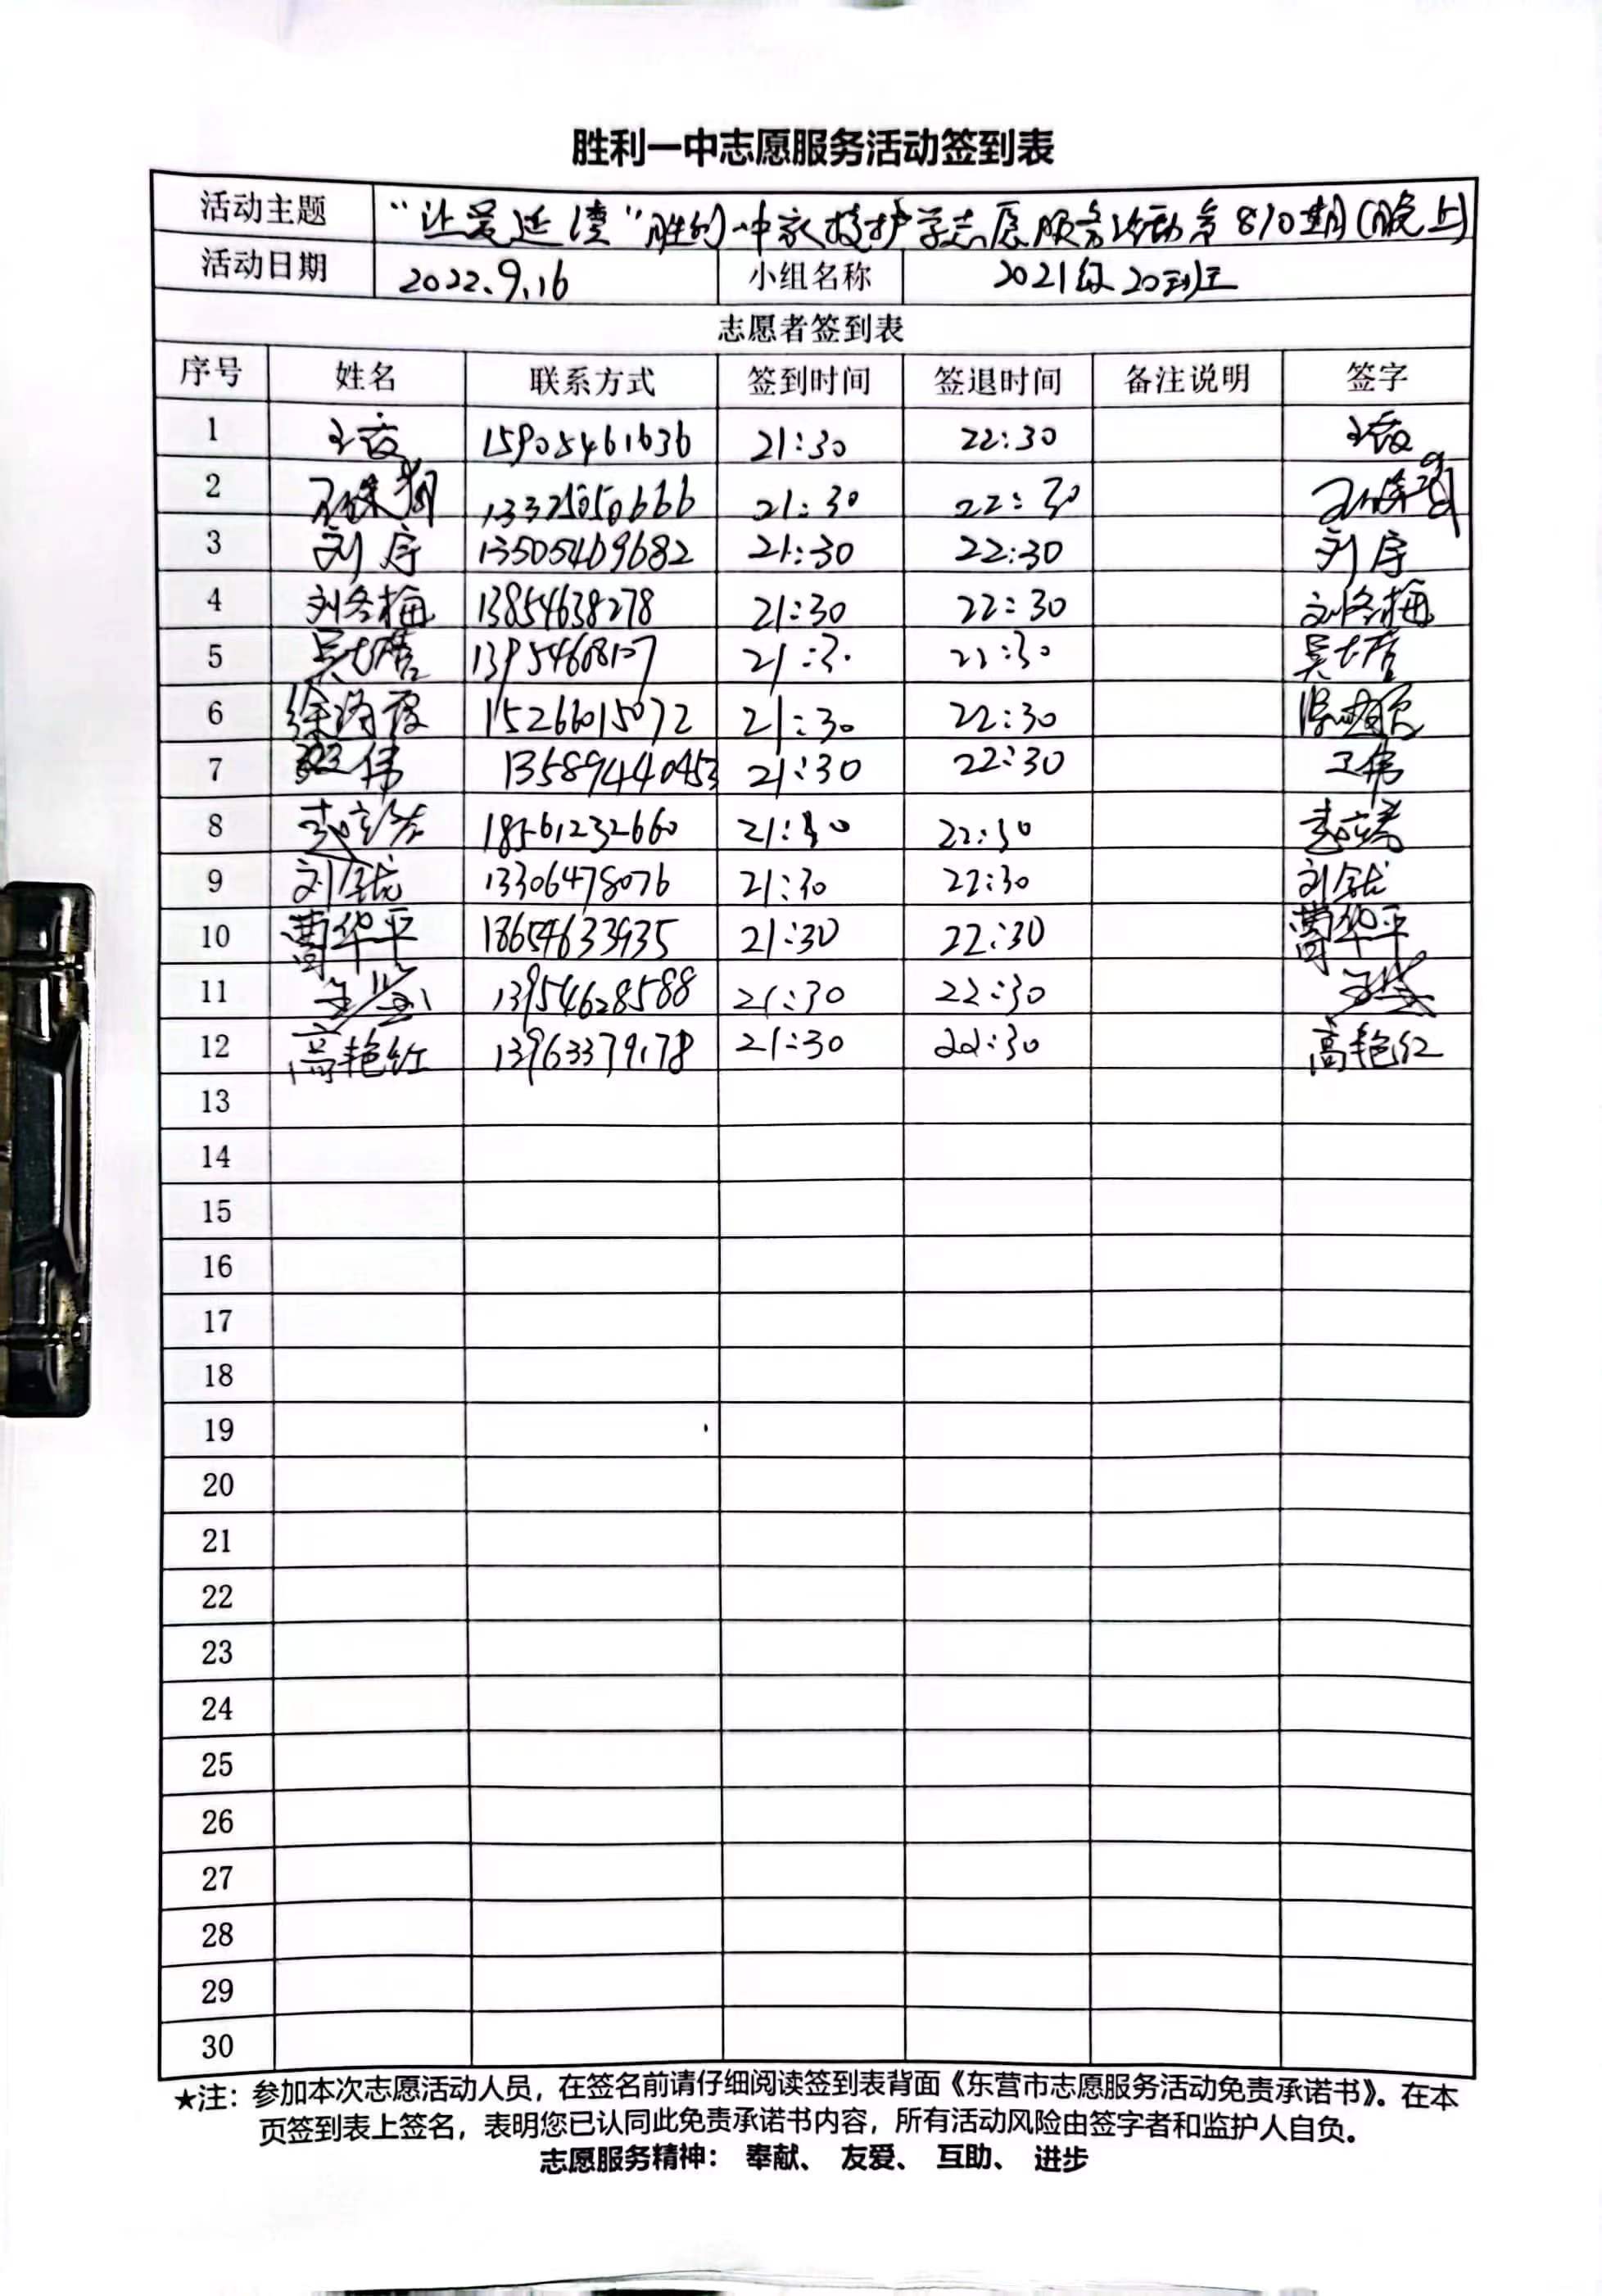 胜利一中志愿服务活动签到表
活动主题 “让爱延续”胜利一中家校护学志愿服务活动第810期(晚上)
活动日期 2022.9.16 小组名称 2021级20班
志愿者签到表
序号 姓名 联系方式 签到时间 签退时间 备注说明 签字
1 15905461636 21:30 22:30
2 21:30 22:30
3 刘序 13505469682 21:30 22:30 刘序
4 刘冬梅 13854638278 21:30 22:30 刘冬梅
5 13954668107 21:30 22:30
6 15266015072 21:30 22:30
7 伟 13589440453 21:30 22:30 王伟
8 18561232660 21:30 22:30
9 刘 13306478076 21:30 22:30 刘
10 曹华平 18654633935 21:30 22:30 曹华平
11 13954628588 21:30 22:30
12 高艳红 13963379178 21:30 22:30 高艳红
13
14
15
16
17
18
19
20
21
22
23
24
25
26
27
28
29
30
★注：参加本次志愿活动人员，在签名前请仔细阅读签到表背面《东营市志愿服务活动免责承诺书》。在本
页签到表上签名，表明您已认同此免责承诺书内容，所有活动风险由签字者和监护人自负。
志愿服务精神： 奉献、 友爱、 互助、 进步